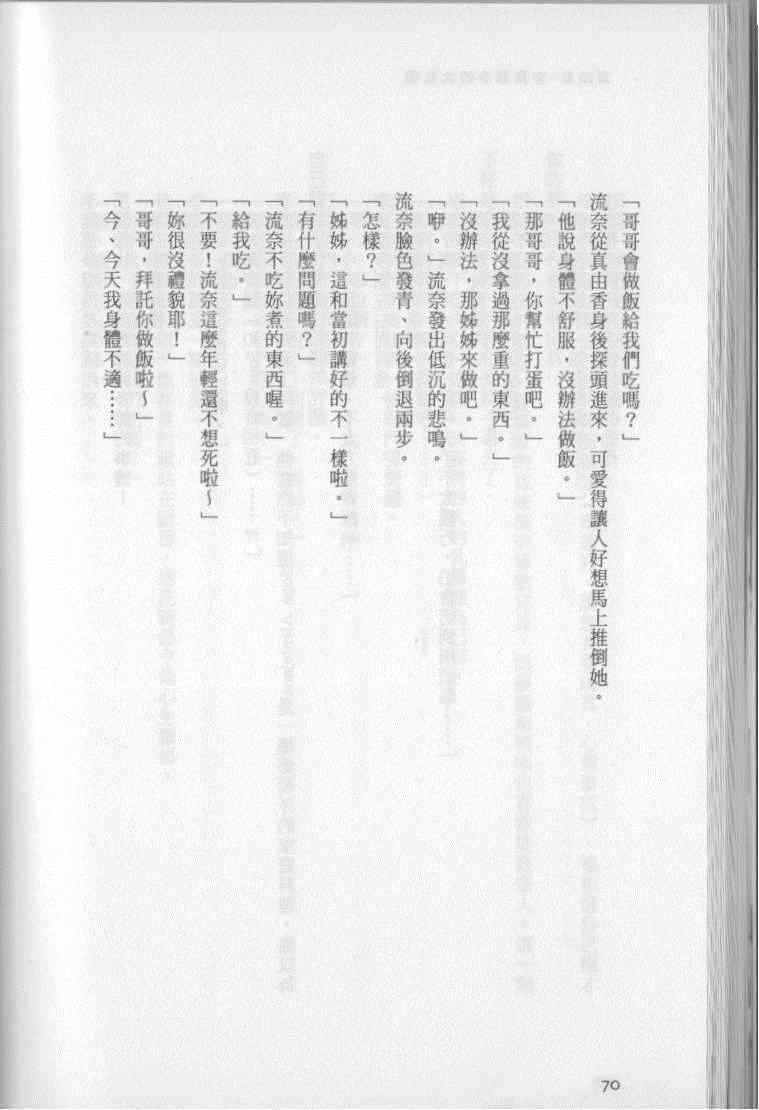 「哥哥會做飯給我們吃嗎？」
流奈從真由香身後探頭進來，可愛得讓人好想馬上推倒她。
「他說身體不舒服，沒辦法做飯。」
「那哥哥，你幫忙打蛋吧。」
「我從沒拿過那麼重的東西。」
「沒辦法，那姊姊來做吧。」
「咿。」流奈發出低沉的悲鳴。
流奈臉色發青、向後倒退兩步。
「怎樣？」
「姊姊，這和當初講好的不一樣啦。」
「有什麼問題嗎？」
「流奈不吃妳煮的東西喔。」
「給我吃。」
「不要！流奈這麼年輕還不想死啦～」
「妳很沒禮貌耶！」
「哥哥，拜託你做飯啦～」
「今、今天我身體不適……」
70